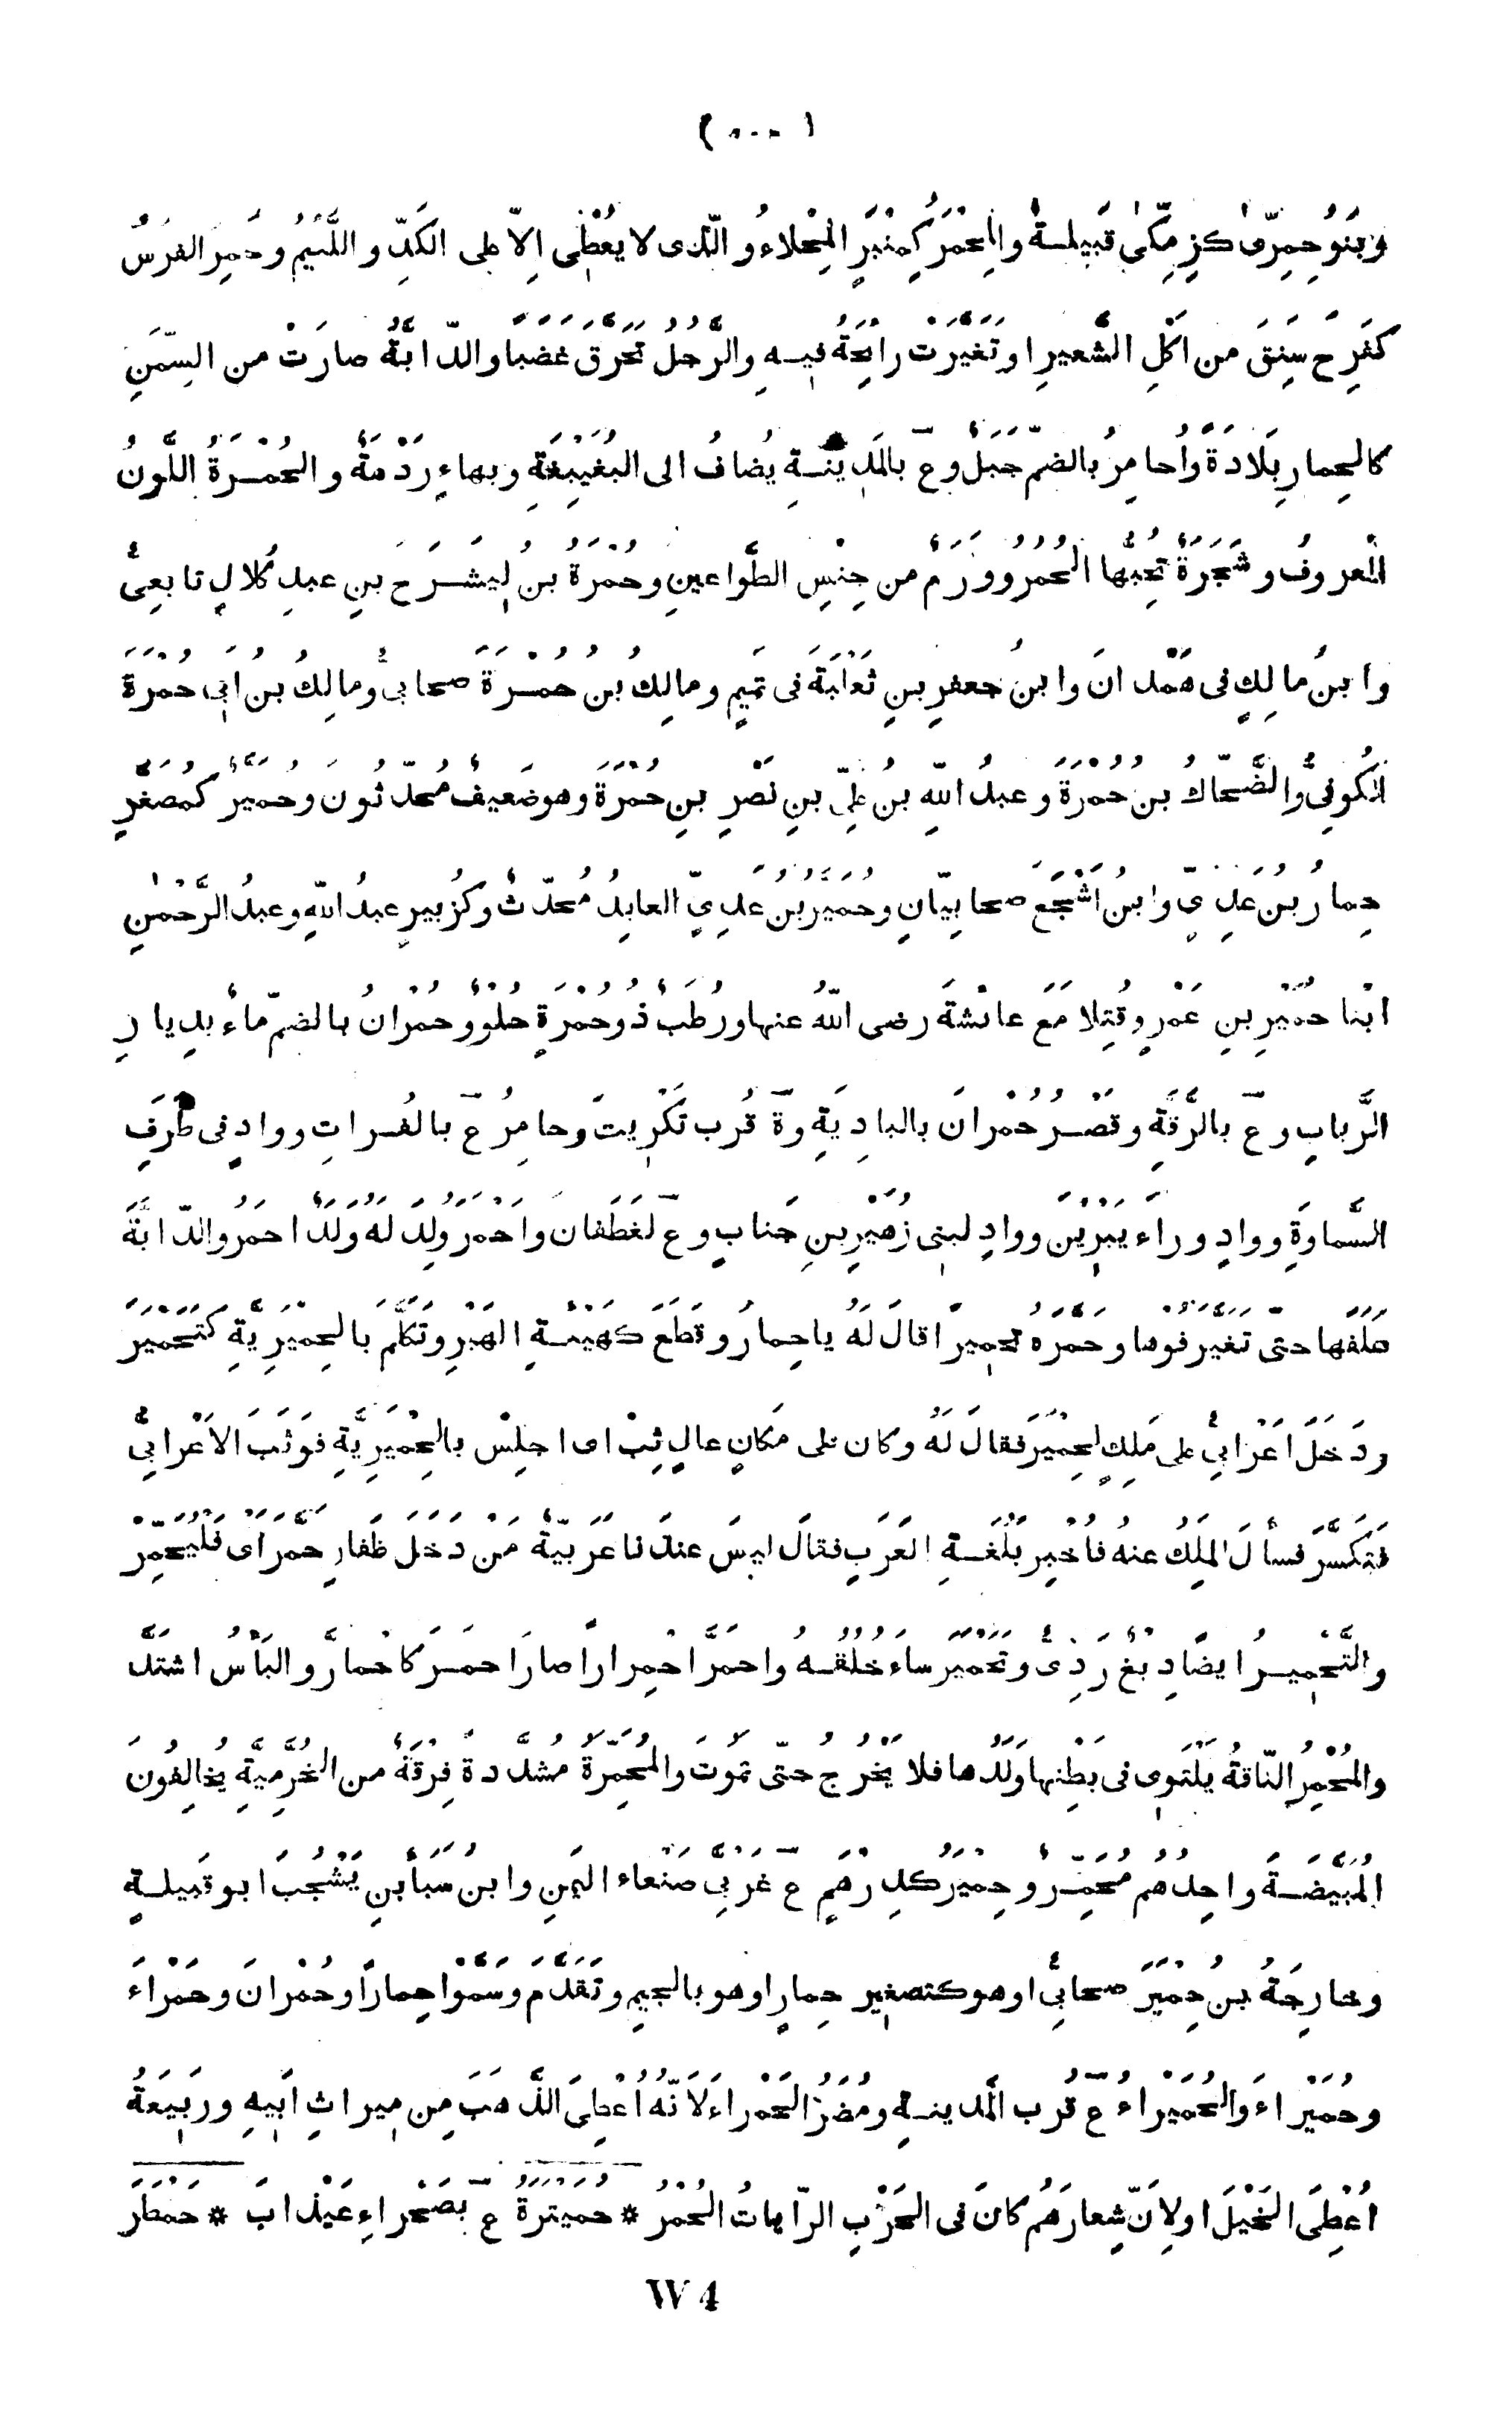 ( ٥٠٠ )
وبَنُو حِمِرّى كَزِمِكّى قَبيلـةٌ والمِحْمَرُ كمِنْبَرٍ المِحْلاءُ والّذى لا يُعْطِى اِلاّ على الكَدِّ واللَّئيمُ وحَمِرَ الفَرَسُ
كفَرِحَ سَنِقَ من اَكْلِ الشَّعيرِ او تَغَيَّرَتْ رائحَةُ فيـهِ والرَّجلُ تَحَرَّقَ غضَبا والدّابَّةُ صارَتْ من السِّمَنِ
كالحِمارِ بَلادَةً واُحامِرُ بالضمّ جَبَلٌ وع بالمَدينـةِ يُضافُ الى البُغَيْبِغَةِ وبهاءٍ رَدْهَةٌ والحُمْـرَةُ اللَّونُ
المَعروفُ وشَجَرَةٌ تُحِبُّها الحُمُرُ ووَرَمٌ من جِنْسِ الطَّواعينِ وحُمْرَةُ بن لِيشَـرَحَ بنِ عبدِ كُلالٍ تابِعىٌّ
وابنُ مالِكٍ فى هَمْدانَ وابنُ جعفرِ بنِ ثَعْلَبَةَ فى تَميمٍ ومالِكُ بن حُمْـرَةَ صحابىٌّ ومالِكُ بن اَبى حُمْرَةَ
الكُوفىُّ والضَّحّاكُ بن حُمْرَةَ وعبدُ اللّهِ بن علِىّ بنِ نَصْرِ بنِ حُمْرَةَ وهو ضَعيفٌ مُحَدّثُونَ وحُمَيِّرٌ كمُصَغَّرِ
حِمارُ بن عَدِىٍّ وابنُ اَشْجَعَ صحابِيّانِ وحُمَيِّرُ بن عَدِىٍّ العابِدُ مُحَدّثٌ وكَزُبَيرٍ عبدُ اللّهِ وعبدُ الرَّحْمٰنِ
ابْنا حُمَيْرِ بنِ عَمْرٍو قُتِلا مَعَ عائشَةَ رضى اللّهُ عنها ورُطَبٌ ذُو حُمْرَةٍ حُلْوٌ وحُمْرانُ بالضمّ ماءٌ بدِيارِ
الرَّبابِ وع بالرَّقَّةِ وقَصْـرُ حُمْرانَ بالبادِيَةِ وة قُربَ تَكْرِيتَ وحامِرٌ ع بالفُـراتِ ووادٍ فى طَرَفِ
السَّماوَةِ ووادٍ وراءَ يَبْرِينَ ووادٍ لبنى زُهَيْرِ بنِ جَنابٍ وع لغَطَفانَ واَحْمَرَ وُلِدَ لَهُ وَلَدٌ احمَرُ والدّابَّةَ
عَلَفَها حتّى تَغَيَّرَ فُوها وحَمَّرَهُ تَحْميرًا قالَ لَهُ ياحِمارُ وقَطَعَ كَهَيْئَـةِ الهَبْرِ وتَكَلَّمَ بالحِمْيَرِيَّةِ كتَحَمْيَرَ
ودَخَلَ اَعْرابىٌّ على مَلِكٍ لحِمْيَرَ فقالَ لَهُ وكان على مَكانٍ عالٍ ثِبْ اى اجلِسْ بالحِمْيَرِيَّةِ فوَثَبَ الاَعْرابىُّ
فتَكَسَّرَ فسأَلَ المَلِكُ عنه فاُخْبِرَ بلُغَـةِ العَرَبِ فقالَ ليسَ عندَنا عَرَبيّةٌ مَنْ دَخَلَ ظَفارِ حَمَّرَ اى فلْيُحَمِّرْ
والتَّحْمِيـرُ ايضًا دِبْغٌ رَدِىٌّ وتَحَمْيَرَ ساءَ خُلُقُـهُ واحمَرَّ احْمِرارًا صارَ احمَـرَ كاحْمارَّ والبَأْسُ اشتَدَّ
والمُحْمِرُ النّاقةُ يَلْتَوِى فى بَطْنِها ولَدُها فلا يَخْرُجُ حتّى تَموتَ والمُحَمِّرَةُ مشَدَّدَةً فِرْقَةٌ من الخُرَّمِيَّةِ يُخالِفُونَ
المُبَيِّضَـةَ واحِدُهُم مُحَمِّـرٌ وحِمْيَرٌ كدِرْهَمٍ ع غَرْبِىَّ صَنْعاءِ اليَمَنِ وابنُ سَبَأ بنِ يَشْجُبَ ابو قَبيلـةٍ
وخارِجَةُ بـن حِمْيَرَ صحابىٌّ او هو كتصغيرِ حِمارٍ او هو بالجيمِ وتَقَدَّمَ وسَمَّوْا حِمارًا وحُمْرانَ وحَمْراءَ
وحُمَيْراءَ والحُمَيْراءُ ع قُربَ المَدينـةِ ومُضَرُ الحَمْراءِ لاَنَّهُ اُعْطِىَ الذَّهَبَ مِن مِيراثِ اَبيهِ ورَبيعَةُ
اُعْطِىَ الخَيْلَ او لاَنَّ شِعارَهُم كانَ فى الحَرْبِ الرّاياتُ الحُمْرُ * حُمَيْتِرَةُ ع بصَحْراءِ عَيْذابَ * حَمْطَرَ
W 4